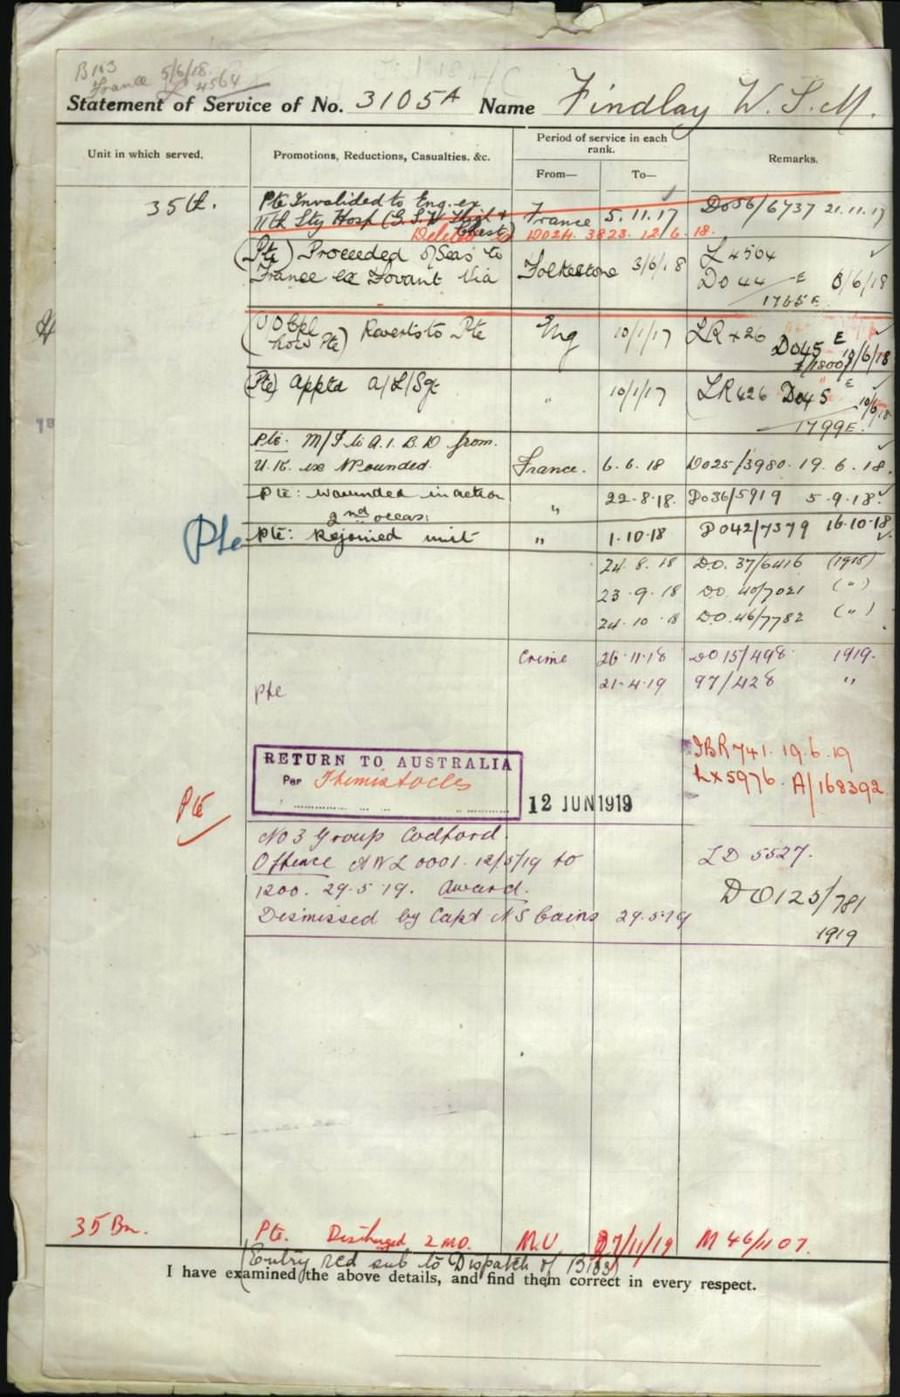 B103
France 5/6/18.
L 4564
Statement of Service of No. 3105A Name Findlay W. S. M.
Unit in which served.
Promotions, Reductions, Casualties. &c.
Period of service in each rank.
From—
To—
Remarks.
35th.
Pte Invalided to Eng. ex France 5.11.17 DO56/6737 21.11.17
11th Sty Hosp (G.S.W. Thigh & Chest)
Deleted DO24. 3823. 12.6.18.
(Pte) Proceeded O/Seas to Folkestone 3/6/18 L 4564
France ex Fovant Via DO 44 E 8/6/18
1765E
now Pte) Reverts to Pte Eng 10/1/17 LR 426 DO45 E 10/6/18
1800
(Pte) Appta A/L/Sgt " 10/1/17 LR 426 DO45 E 10/6/18
1799E.
Pte. M/I to A.I.B.D from
U.K. ex Wounded. France. 6.6.18 DO25/3980. 19.6.18.
Pte: Wounded in action " 22-8-18. DO36/5919 5-9-18
2nd occas:
Pte
Pte: Rejoined unit " 1.10.18 DO42/7379 16.10.18
24.8.18 D.O. 37/6416 (1918)
23-9-18 DO. 40/7021 (")
24-10-18 D.O. 46/7782 (")
Crime 26-11-18 DO 15/498 1919.
Pte 21-4-19 97/428 "
RETURN TO AUSTRALIA
Per Themistocles
12 JUN 1919
IBR 741. 19.6.19
Lx 5976. A/168392
Pte
No 3 Group Codford.
Offence AWL 0001. 12/5/19 to LD 5527.
1200. 29-5-19. Award. DO125/781
Dismissed by Capt NS Cains 29.5.19 1919
35 Bn. Pte. Discharged 2 MD. M.U. 27/11/19 M 46/1107.
(Entry red sub to Dispatch of B103)
I have examined the above details, and find them correct in every respect.